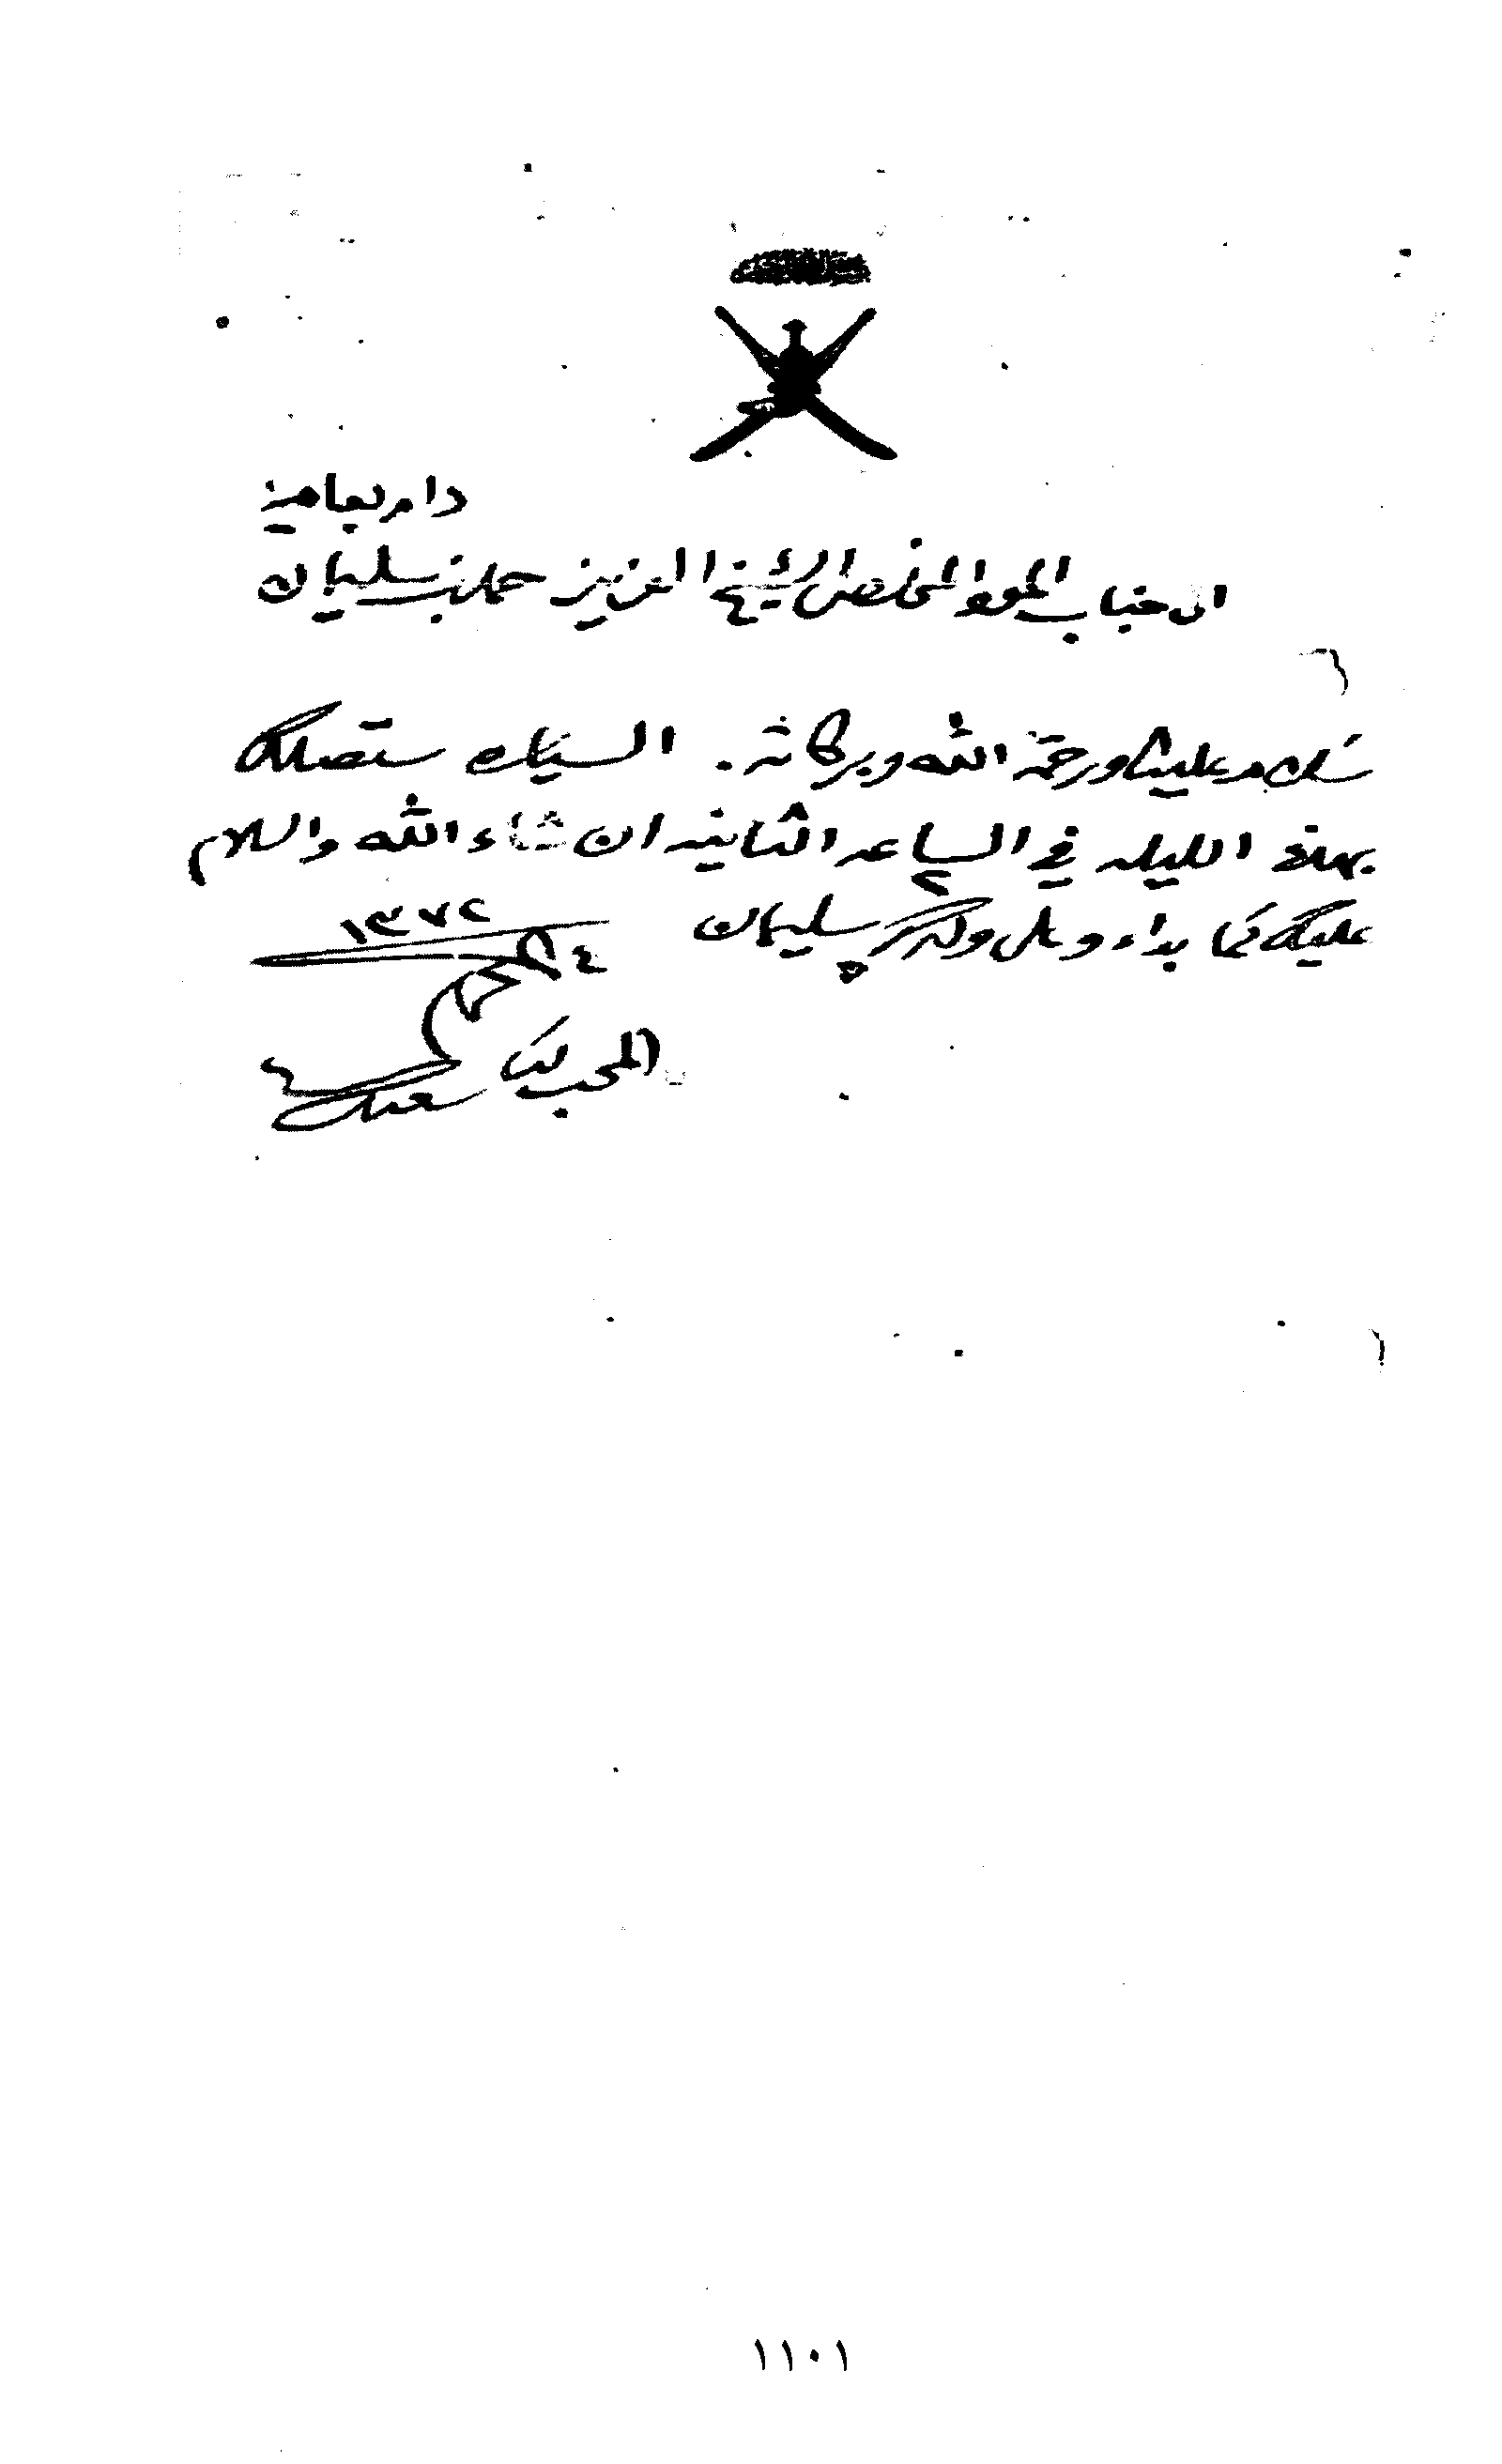 دام بعافية
الى جناب المحب المخلص الشيخ العزيز حمد بن سليمان
سلام عليك ورحمة الله وبركاته. السيارة ستصلك
بهذه الليله في الساعه الثانيه ان شاء الله والسلام
٢
عليك كما بداء وعلى ولدك سليمان
٤ محرم ١٣٧٢
المحب لك سعيد
١١٠١